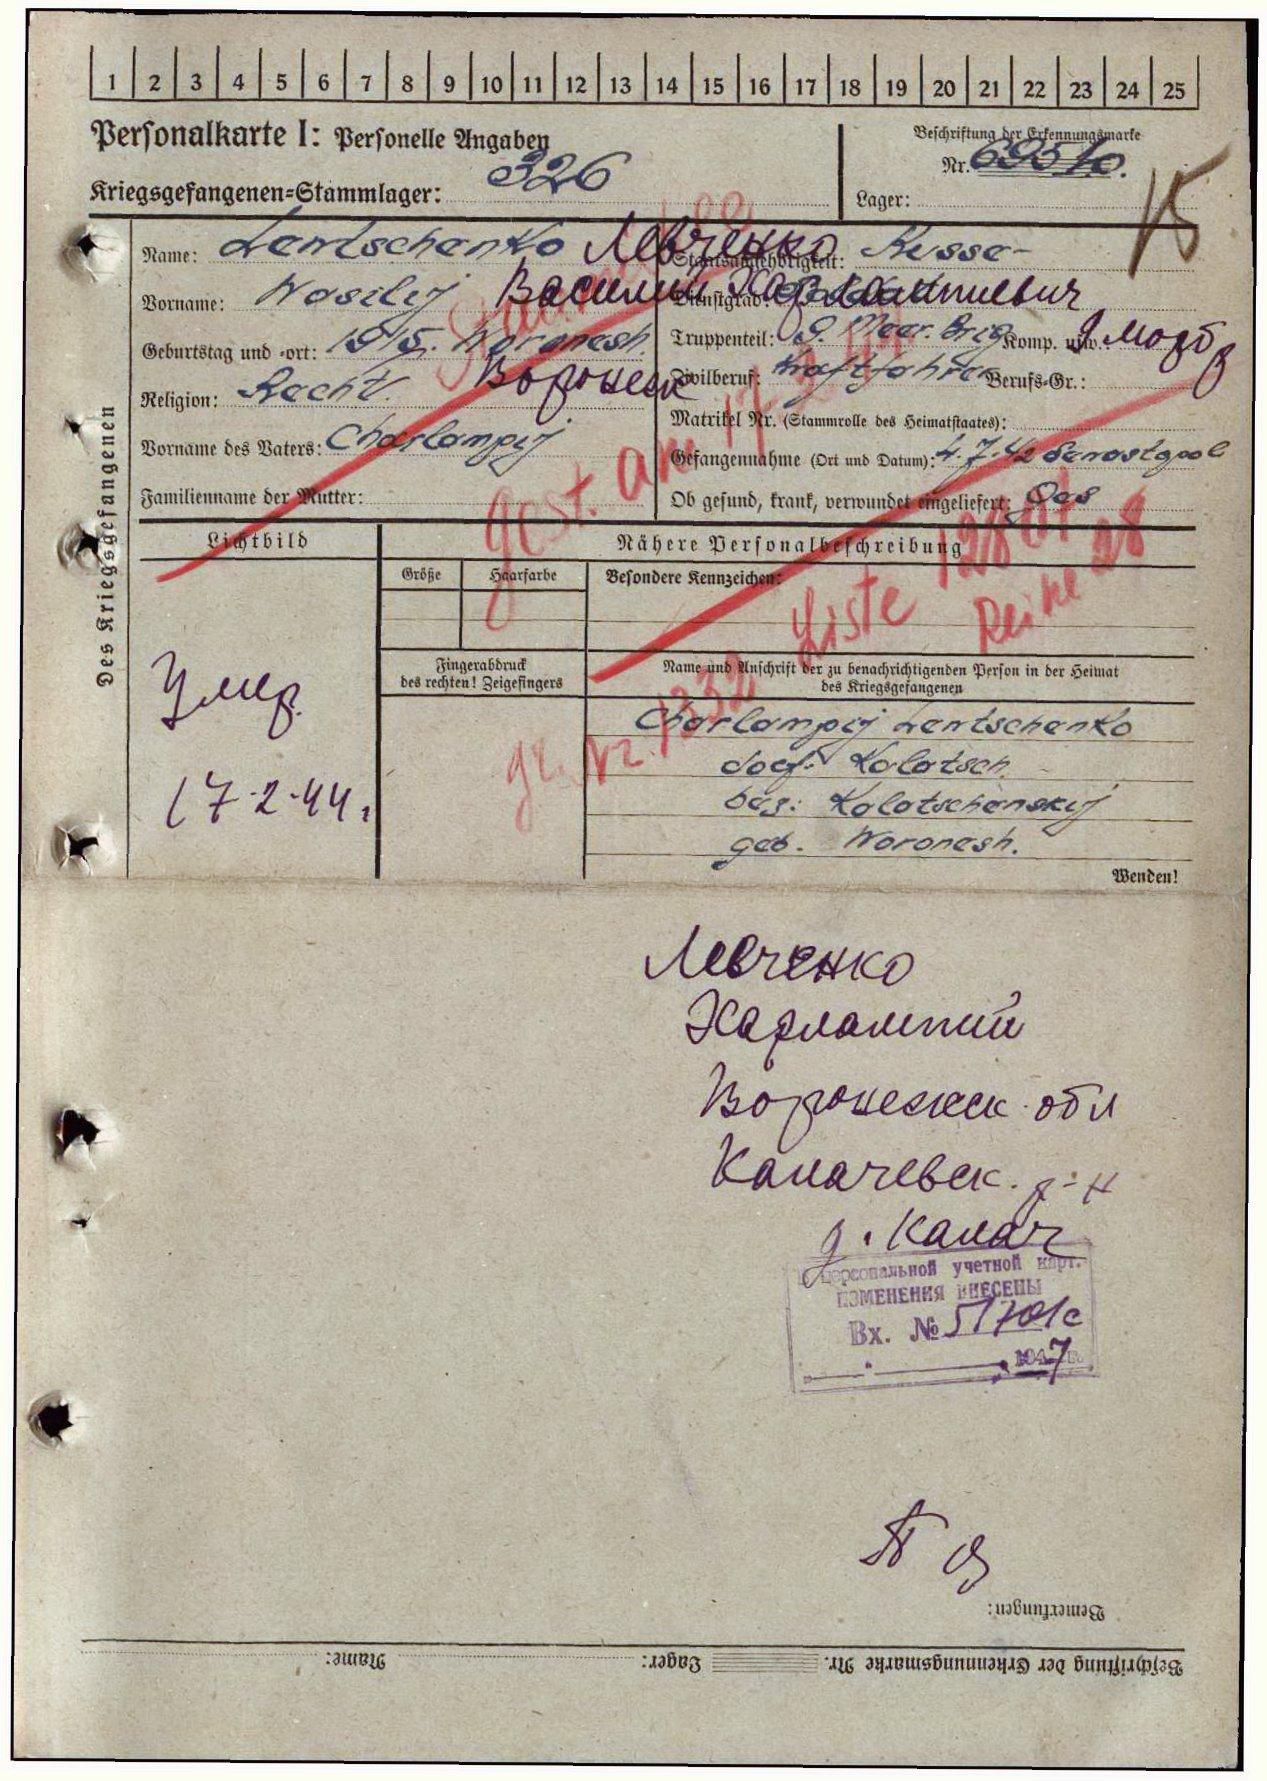 1 2 3 4 5 6 7 8 9 10 11 12 13 14 15 16 17 18 19 20 21 22 23 24 25
Personalkarte I: Personelle Angaben
Beschriftung der Erkennungsmarke
Kriegsgefangenen-Stammlager: 326
Nr.
Lager:
15
Des Kriegsgefangenen
Name: Lewtschenko Левченко
Staatsangehörigkeit: Russe
Vorname: Wasilij Василий Харлампиевич
Dienstgrad:
Geburtstag und -ort: 1915. Woronesh.
Воронеж
Truppenteil: 9. Meer. Brig Komp. usw. 9 морбр
Religion:
Zivilberuf: Kraftfahrer Berufs-Gr.:
Matrikel Nr. (Stammrolle des Heimatstaates):
Vorname des Vaters: Charlampij
Gefangennahme (Ort und Datum): 4.7.42 Sewastopol
Familienname der Mutter:
Ob gesund, krank, verwundet eingeliefert: Ges
gest. am 17.2.44
Liste
Reihe 28
gr. Nr. 1332
Lichtbild
Nähere Personalbeschreibung
Größe Haarfarbe Besondere Kennzeichen:
Fingerabdruck
des rechten! Zeigefingers
Name und Anschrift der zu benachrichtigenden Person in der Heimat
des Kriegsgefangenen
Умер.
17.2.44г
Charlampij Lewtschenko
dorf. Kolatsch.
bez: Kolotschenskij
geb. Woronesh.
Wenden!
Левченко
Харлампий
Воронежск. обл
Калачевск. р-н
д. Калач
персональной учетной карт.
ИЗМЕНЕНИЯ ВНЕСЕНЫ
Вх. № 51701с
1947 г.
Bemerkungen:
Beschriftung der Erkennungsmarke Nr. Lager: Name: